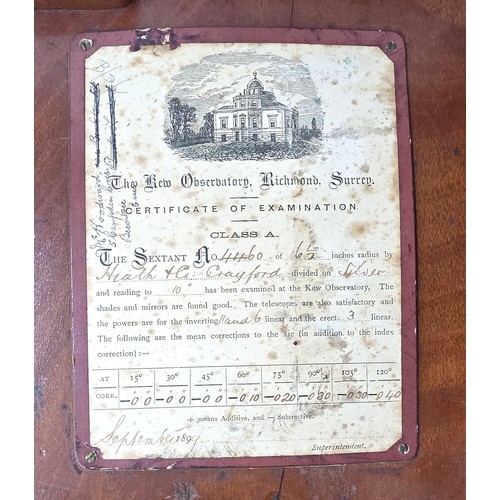 The Kew Observatory, Richmond, Surrey.
CERTIFICATE OF EXAMINATION.
CLASS A.
THE SEXTANT No. 4460 of 6½ inches radius by
Heath & Co. Crayford divided on Silver
and reading to 10" has been examined at the Kew Observatory. The
shades and mirrors are found good. The telescope, are also satisfactory and
the powers are for the inverting 11 and 6 linear and the erect 3 linear.
The following are the mean corrections to the arc (in addition to the index
correction):—
AT 15° 30° 45° 60° 75° 90° 105° 120°
CORR. -0 0 -0 0 -0 0 -0 10 -0 20 -0 30 -0 30 -0 40
+ means Additive, and — Subtractive.
September 189
Superintendent.
Woodward